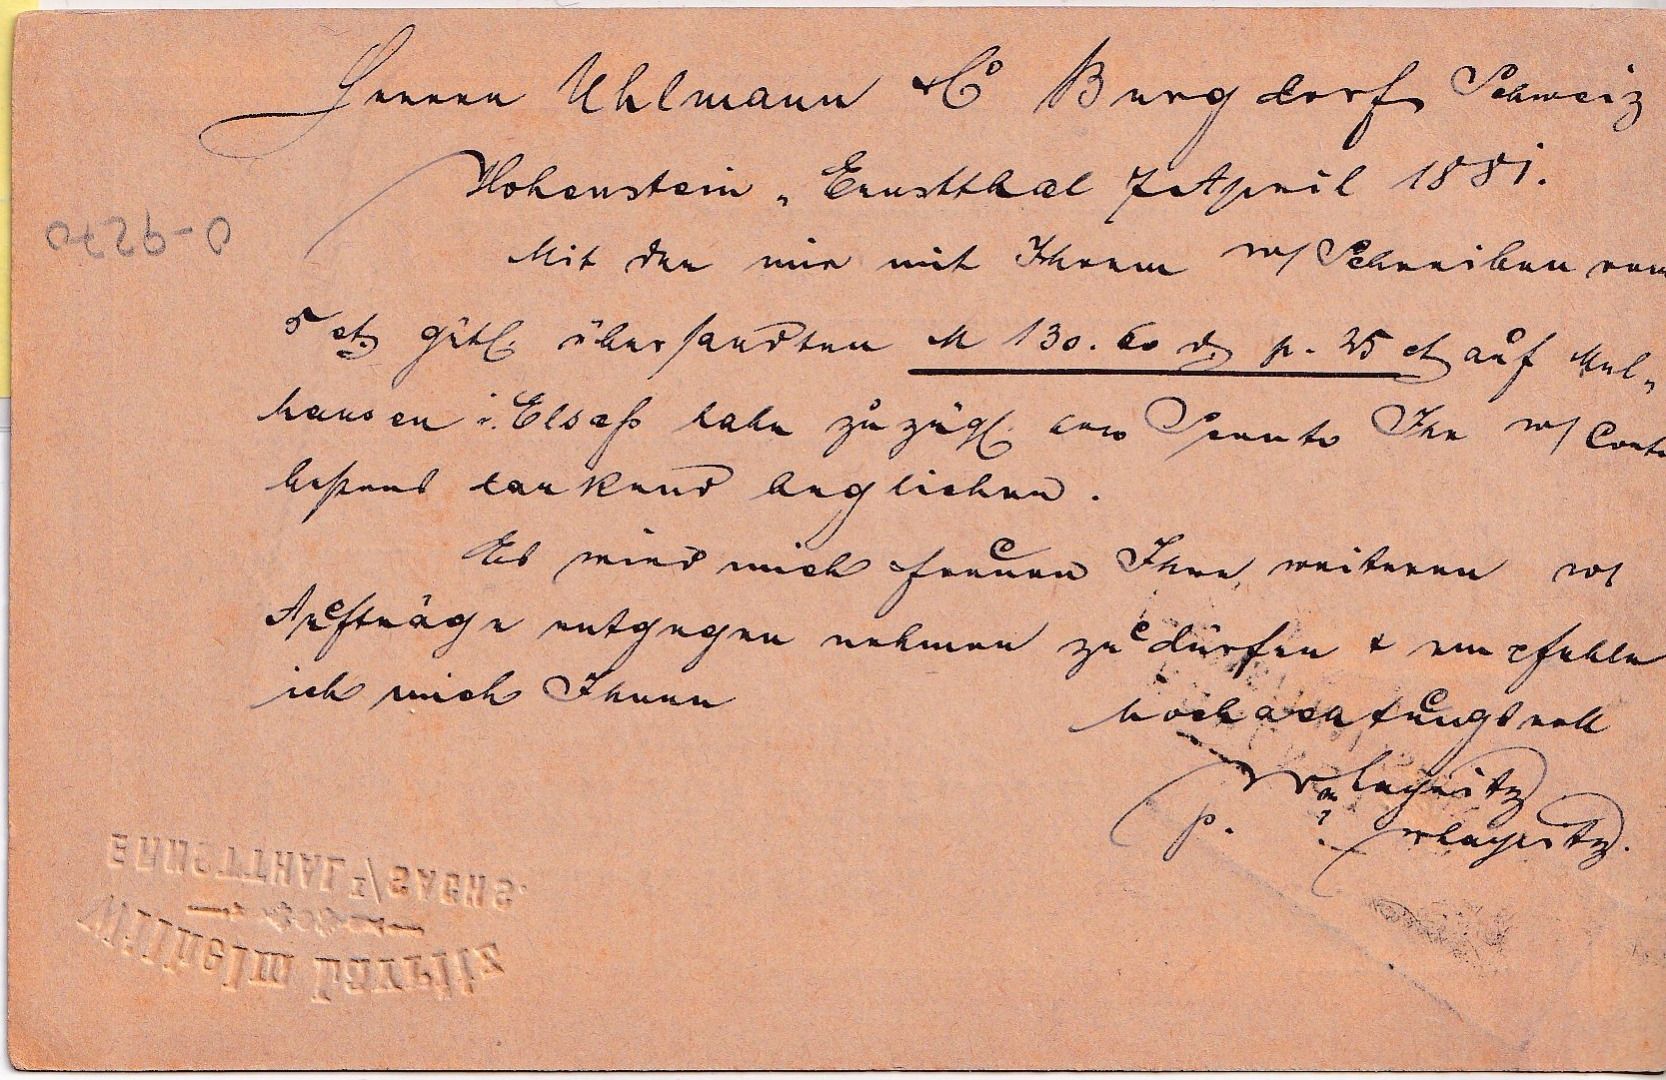 Herren Uhlmann & Co Burgdorf Schweiz
Hohenstein-Ernstthal 7 April 1881.
Mit den mir mit Ihrem w/ Schreiben vom
5 ct. gütl. übersandten M 130.60 d p. 25 ct auf Mul-
hausen i. Elsaß habe zuzügl. Sconto Ihr w/ Conto
bestens dankend beglichen.
Es wird mich freuen Ihre weiteren w/
Aufträge entgegen nehmen zu dürfen & empfehle
ich mich Ihnen
hochachtungsvoll
Layritz
p. Layritz.
Wilhelm Layritz
ERNSTTHAL i/SACHS.